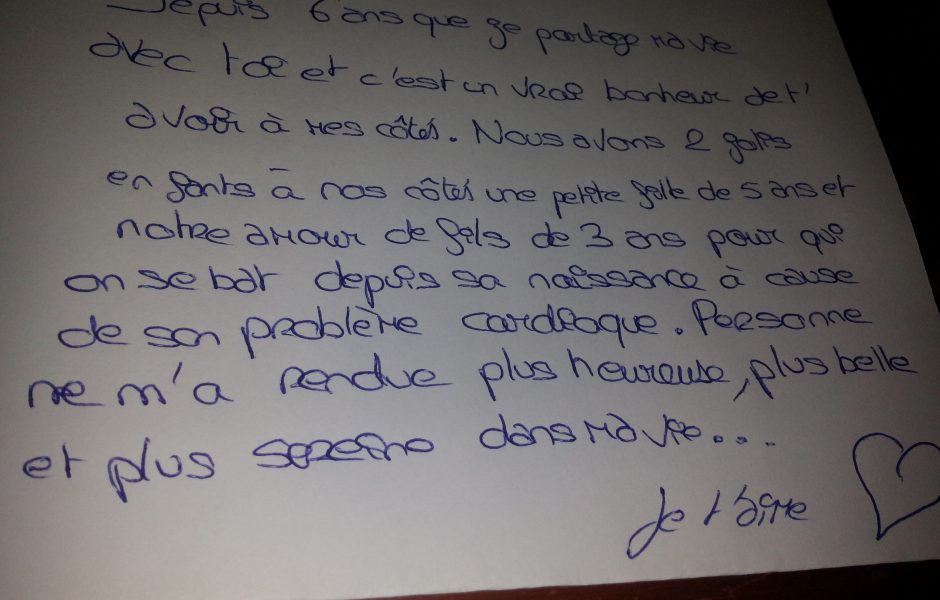 Depuis 6 ans que je partage ma vie
avec toi et c'est un vrai bonheur de t'
avoir à mes côtés. Nous avons 2 
enfants à nos côtés une petite fille de 5 ans et
notre amour de fils de 3 ans pour qui
on se bat depuis sa naissance à cause
de son problème cardiaque. Personne
ne m'a rendue plus heureuse, plus belle
et plus sereine dans ma vie....
Je t'aime